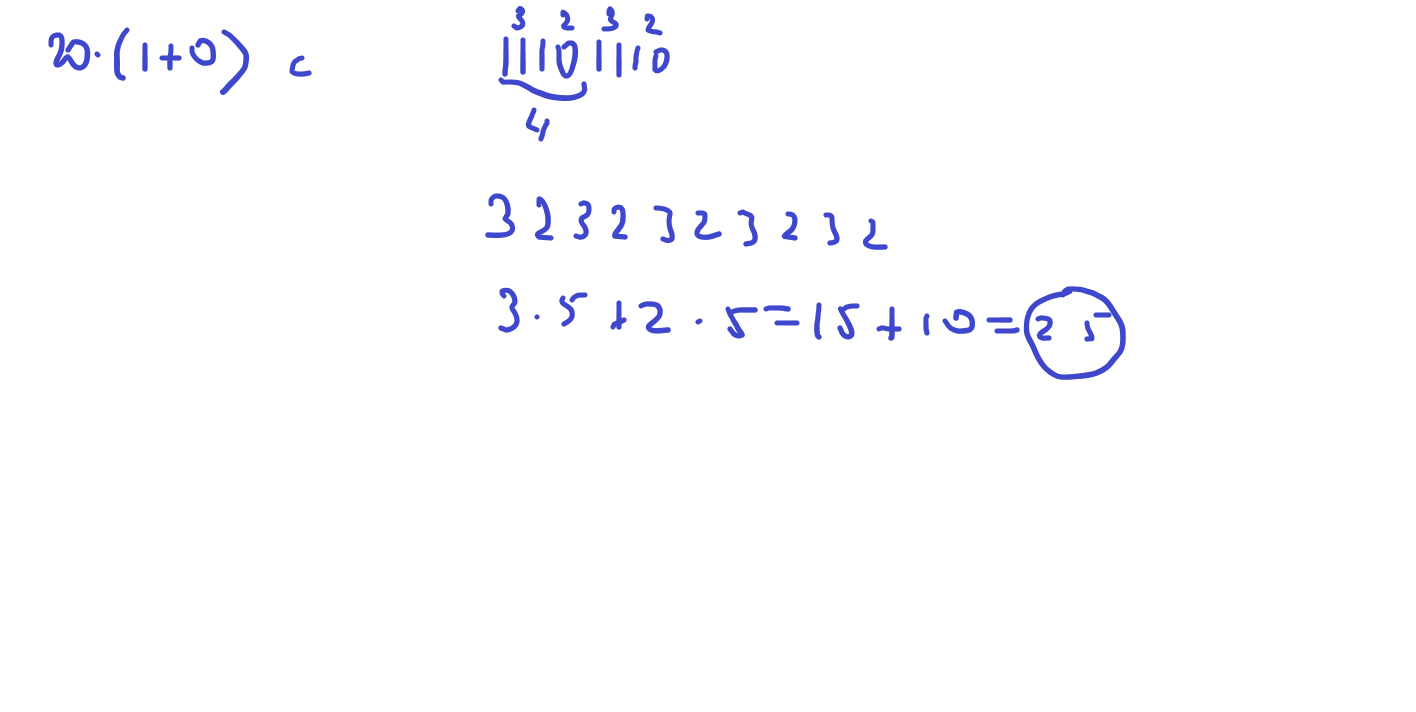 20·(1+0) c
3 2 3 2
11101110
4
3 2 3 2 3 2 3 2 3 2
3·5+2·5=15+10=25